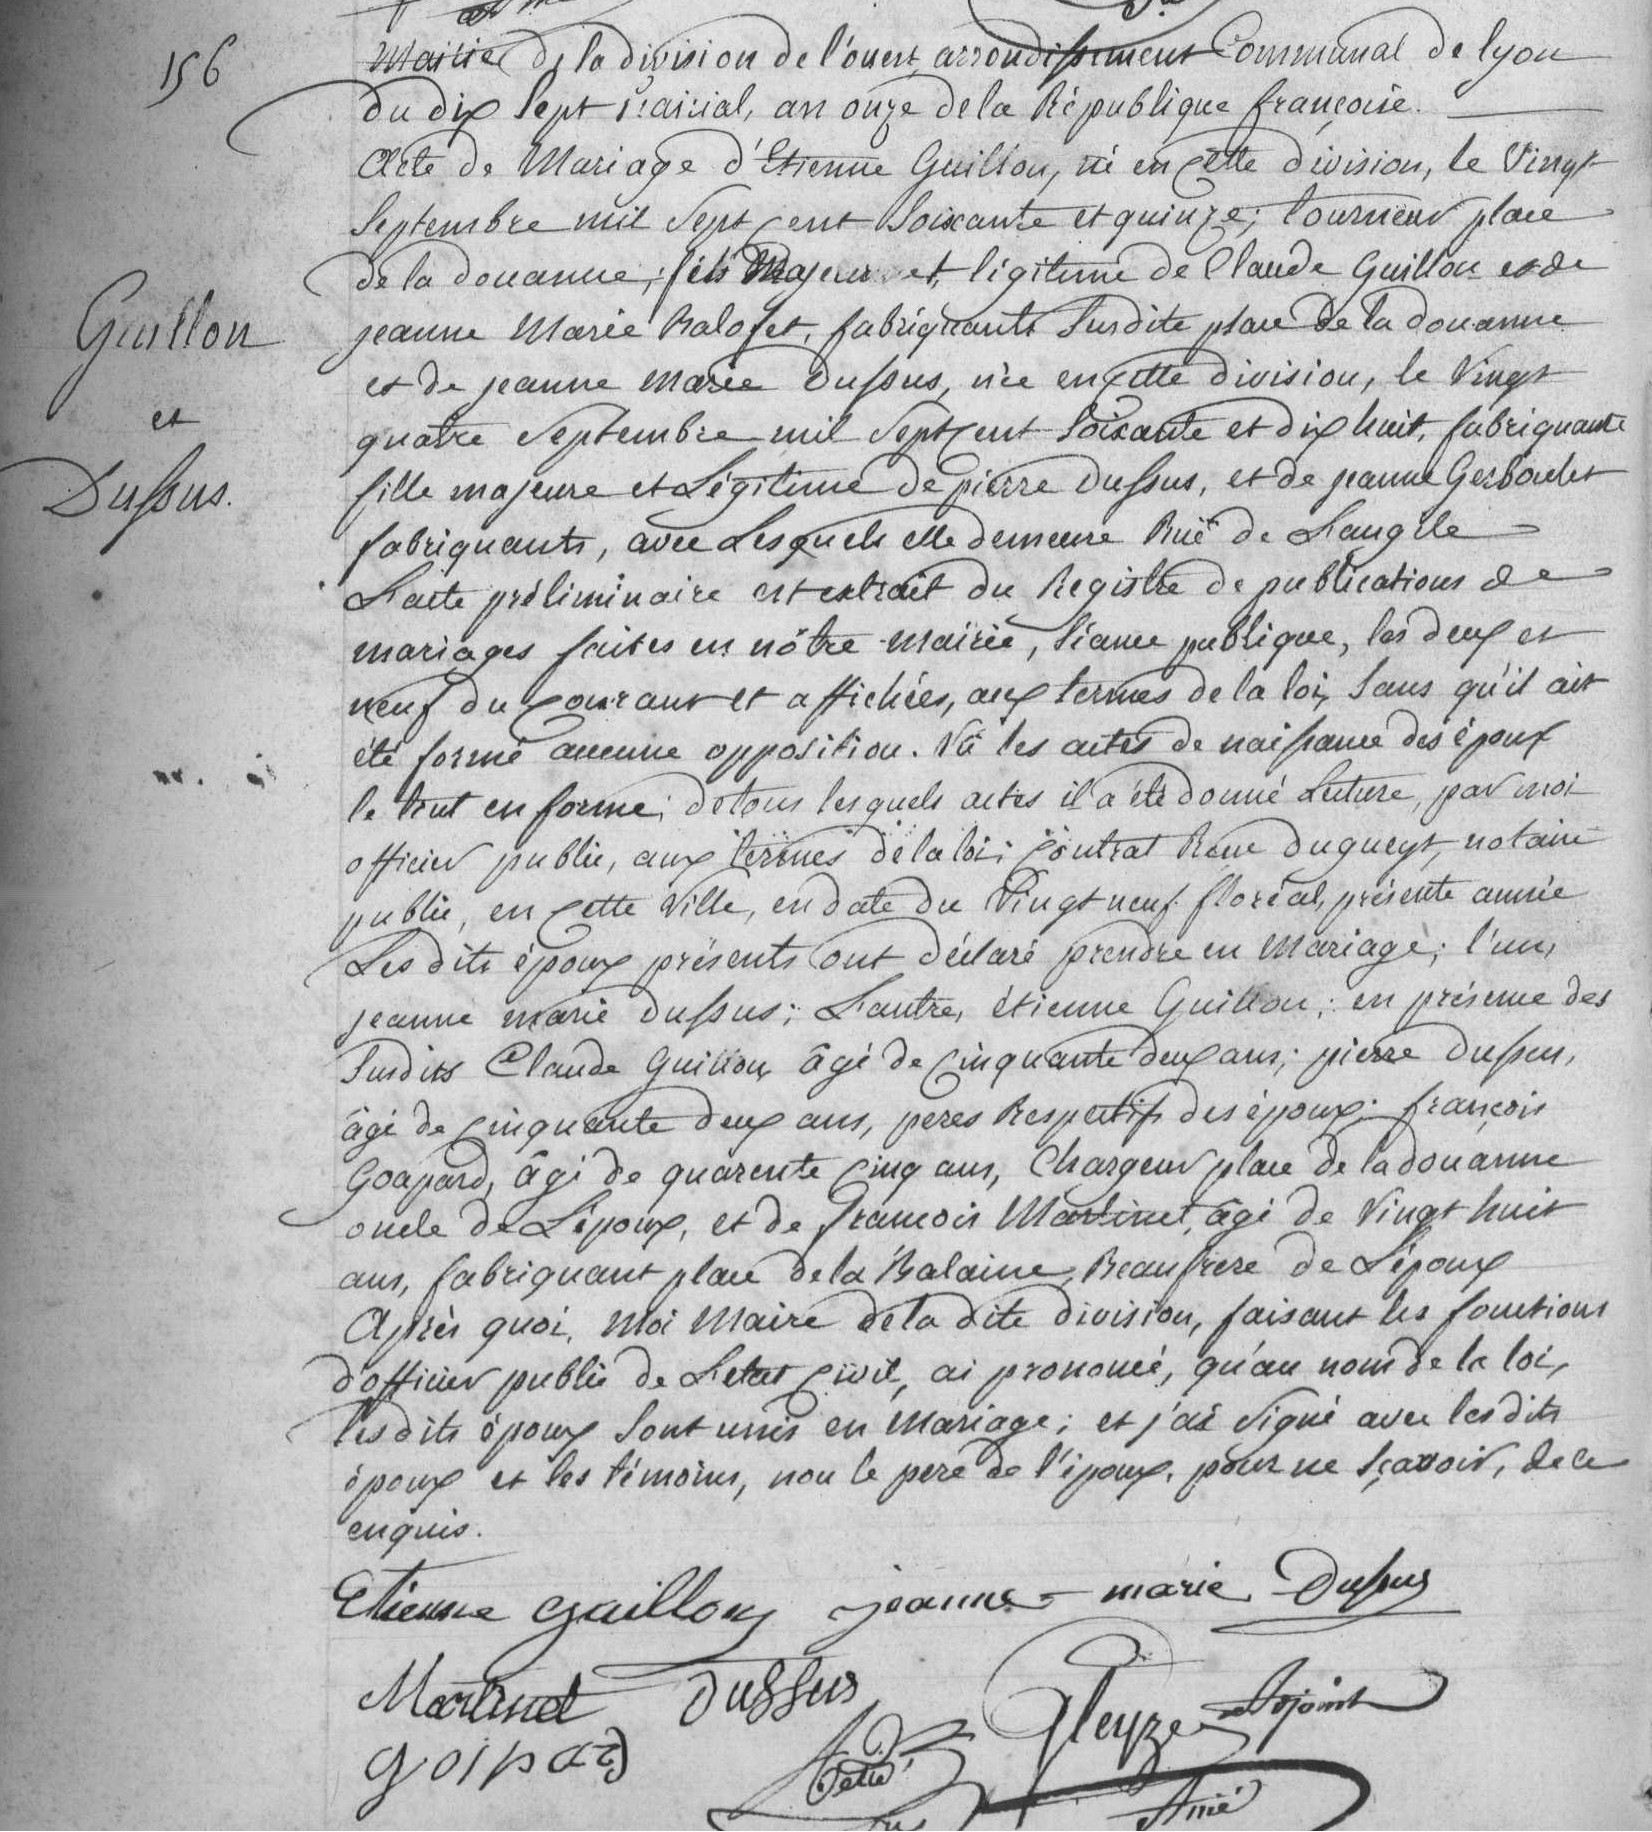 156
Mairie de la division de l'ouest arrondissement Communal de lyon
du dix Sept Prairial, an onze de la République françoise.
Acte de Mariage d'Etienne Guillon, né en Cette division, le Vingt
Septembre mil Sept Cent Soixante et quinze; tourneur place
de la douanne; fils Majeur et légitime de Claude Guillon et de
jeanne Marie Balofet, fabriquants Susdite place de la douanne
et de jeanne Marie Dussus, née en Cette division, le Vingt
quatre Septembre mil Sept Cent Soixante et dix huit, fabriquante
fille majeure et Légitime de pierre Dussus, et de jeanne Gerboulet
fabriquants, avec Lesquels elle demeure Rue de Langele
L'acte préliminaire est extrait du Registre de publications de
mariages faites en nôtre mairie, Séance publique, les deux et
neuf du Courant et affichées, aux termes de la loi, Sans qu'il ait
été formé aucune opposition. Vû les actes de naissance des époux
le tout en forme; de tous lesquels actes il a été donné Lecture, par moi
officier public, aux termes de la loi; Contrat Reçu Dugueyt, notaire
public, en Cette Ville, en date du Vingt neuf floréal, présente année
Les dits époux présents ont déclaré prendre en Mariage; l'un,
jeanne marie Dussus; L'autre, étienne Guillon; en présence des
Susdits Claude Guillon, âgé de Cinquante deux ans; pierre Dussus,
âgé de Cinquante deux ans, peres Respectifs des époux; françois
Goapard, âgé de quarente Cinq ans, Chargeur place de la douanne
oncle de L'époux, et de françois Martinet, âgé de Vingt huit
ans, fabriquant place de la Balaine, Beaufrere de L'époux
Après quoi, Moi Maire de la dite division, faisant les fonctions
d'officier public de L'etat Civil, ai prononcé, qu'au nom de la loi,
les dits époux Sont unis en Mariage; et j'ai Signé avec les dits
époux et les témoins, non le pere de l'époux, pour ne Sçavoir, de ce
enquis.
Guillon
et
Dussus.
Etienne Guillon jeanne marie Dussus
Martinet Dussus Gleyze Adjoint
goipard